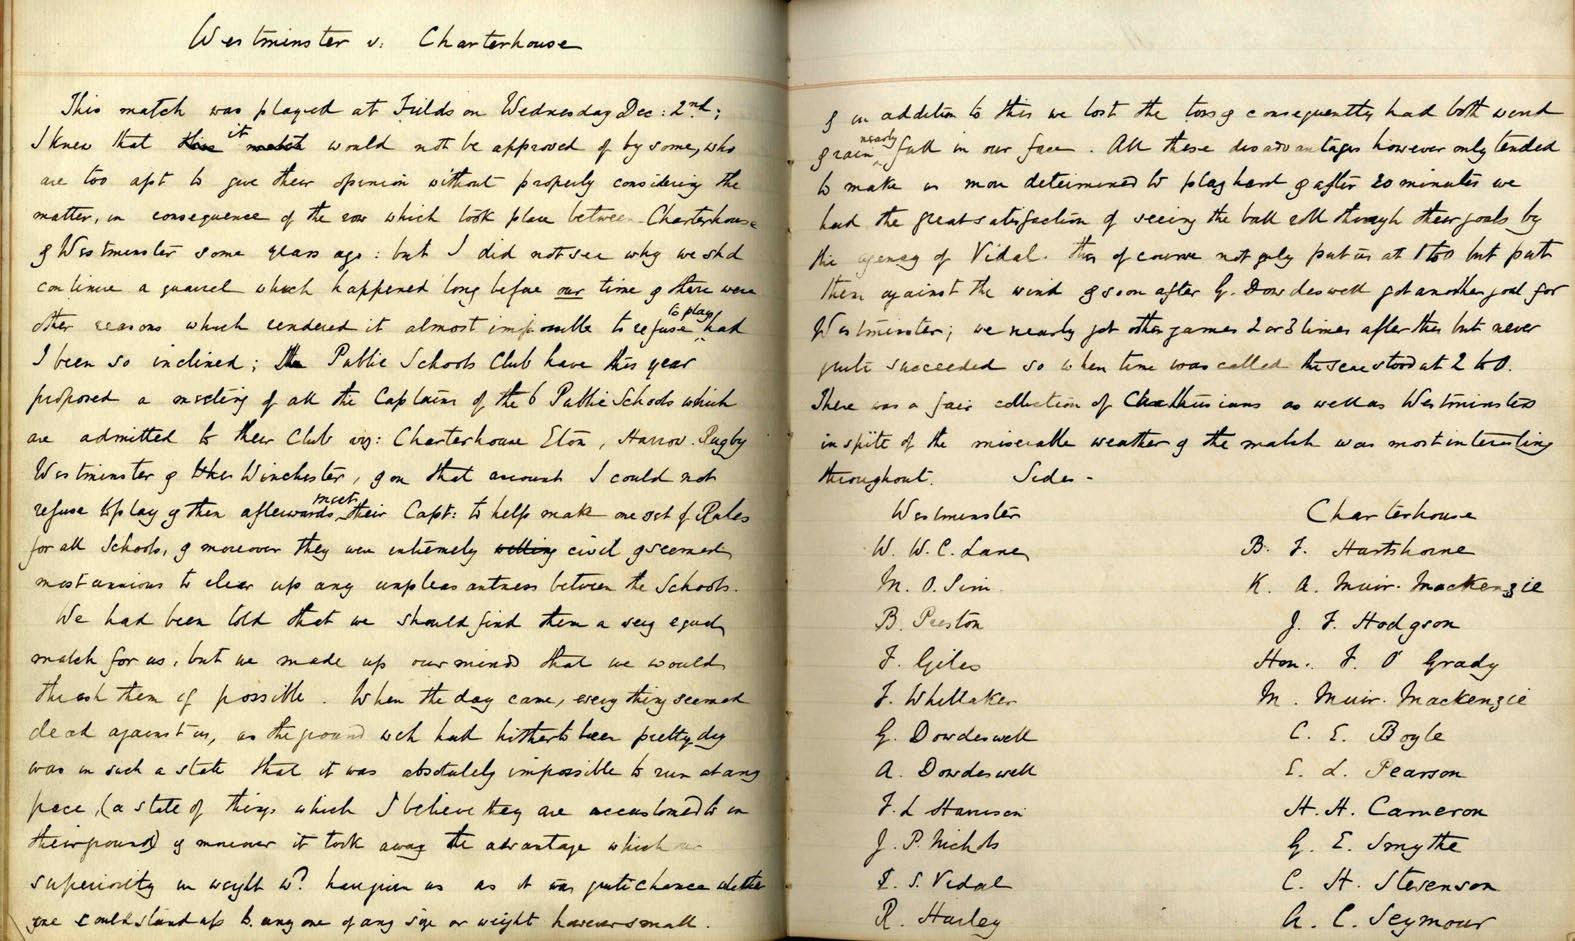 Westminster v. Charterhouse
This match was played at Fields on Wednesday Dec: 2nd;
I knew that this it match would not be approved of by some, who
are too apt to give their opinion without properly considering the
matter, in consequence of the row which took place between Charterhouse
& Westminster some years ago: but I did not see why we shd
continue a quarrel which happened long before our time & there were
other reasons which rendered it almost impossible to refuse to play had
I been so inclined; the Public Schools Club have this year
proposed a meeting of all the Captains of the 6 Public Schools which
are admitted to their Club viz: Charterhouse Eton, Harrow. Rugby
Westminster & Winchester, & on that account I could not
refuse to play & then afterwards meet their Capt: to help make one set of Rules
for all Schools, & moreover they were extremely willing civil & seemed
most anxious to clear up any unpleasantness between the Schools.
We had been told that we should find them a very equal
match for us, but we made up our minds that we would
thrash them if possible. When the day came, every thing seemed
dead against us, as the ground wch had hitherto been pretty dry
was in such a state that it was absolutely impossible to run at any
pace, (a state of things which I believe they are accustomed to in
their ground) & moreover it took away the advantage which our
superiority in weight wd. have given us as it was quite chance whether
one could stand up to any one of any size or weight however small.
& in addition to this we lost the toss & consequently had both wind
& rain nearly full in our face. All these disadvantages however only tended
to make us more determined to play hard & after 20 minutes we
had the great satisfaction of seeing the ball roll through their goals by
the agency of Vidal. this of course not only put us at 1 to 0 but put
them against the wind & soon after G. Dowdeswell got another goal for
Westminster; we nearly got other games 2 or 3 times after this but never
quite succeeded so when time was called the score stood at 2 to 0.
There was a fair collection of Carthusians as well as Westminsters
in spite of the miserable weather & the match was most interesting
throughout. Sides -
Westminster Charterhouse
W. W. C. Lane B. F. Hartshorne
M. O. Sim. K. A. Muir. Mackenzie
B. Preston J. F. Hodgson
F. Giles Hon. F. O'Grady
F. Whittaker M. Muir. Mackenzie
G. Dowdeswell C. E. Boyle
A. Dowdeswell E. L. Pearson
F. L Harrison H. H. Cameron
J. P. Nichols G. E. Smythe
R. S. Vidal C. H. Stevenson
R. Hurley A. C. Seymour